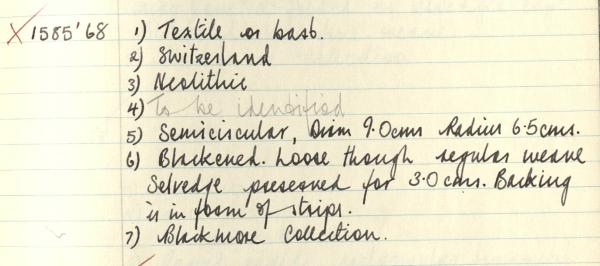 X 1585'68 1) Textile or basb.
2) Switzerland
3) Neolithic
4) To be identified
5) Semicircular, Diam 9.0cms Radius 6.5cms.
6) Blackened. Loose though regular weave
Selvedge preserved for 3.0 cms. Backing
is in form of strips.
7) Blackmore Collection.